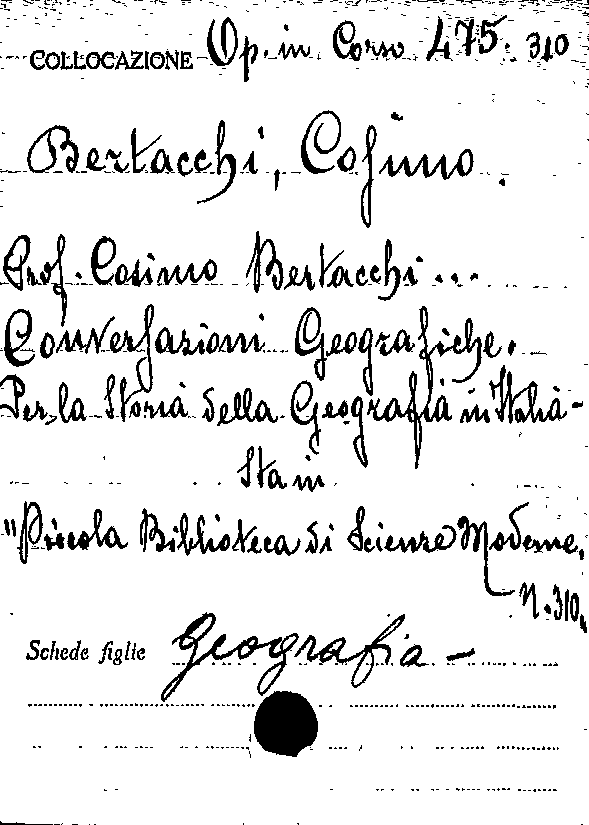 COLLOCAZIONE Op. in Corso 475. 310
Bertacchi, Cosimo.
Prof. Cosimo Bertacchi...
Conversazioni Geografiche.
Per la Storia della Geografia in Italia -
Sta in
"Piccola Biblioteca di Scienze Moderne,
N. 310"
Schede figlie Geografia -